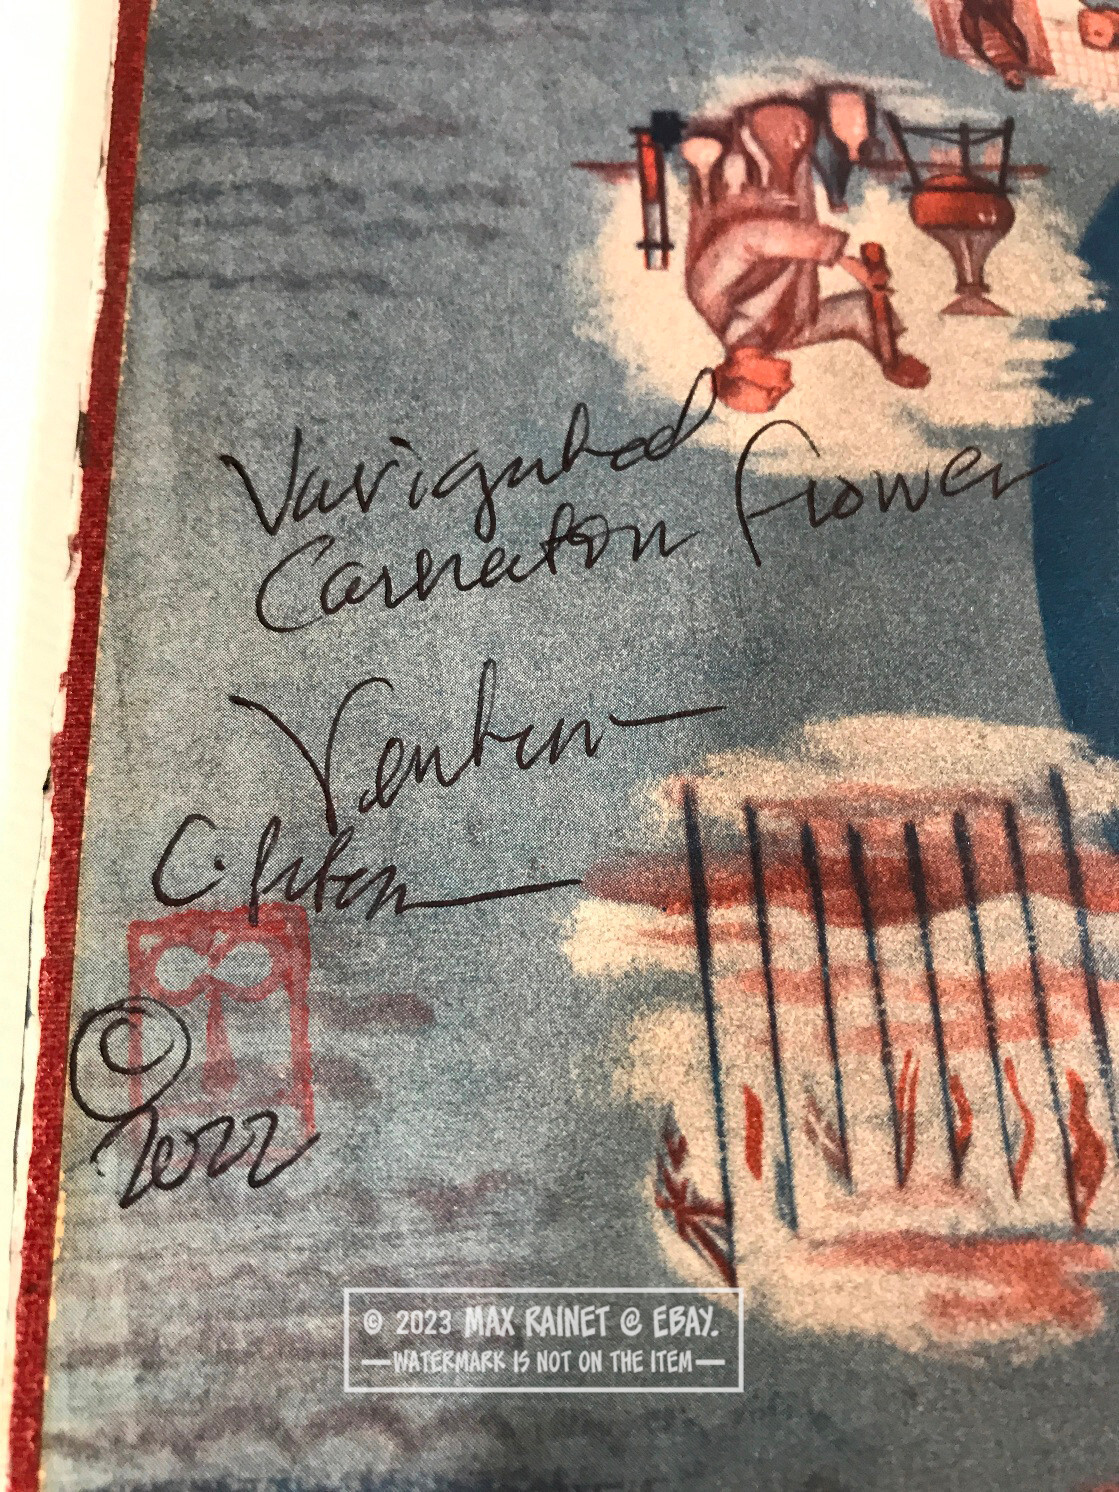 Varigated
Carnation flower
C.
© 2022
© 2023 MAX RAINET @ EBAY.
—WATERMARK IS NOT ON THE ITEM—